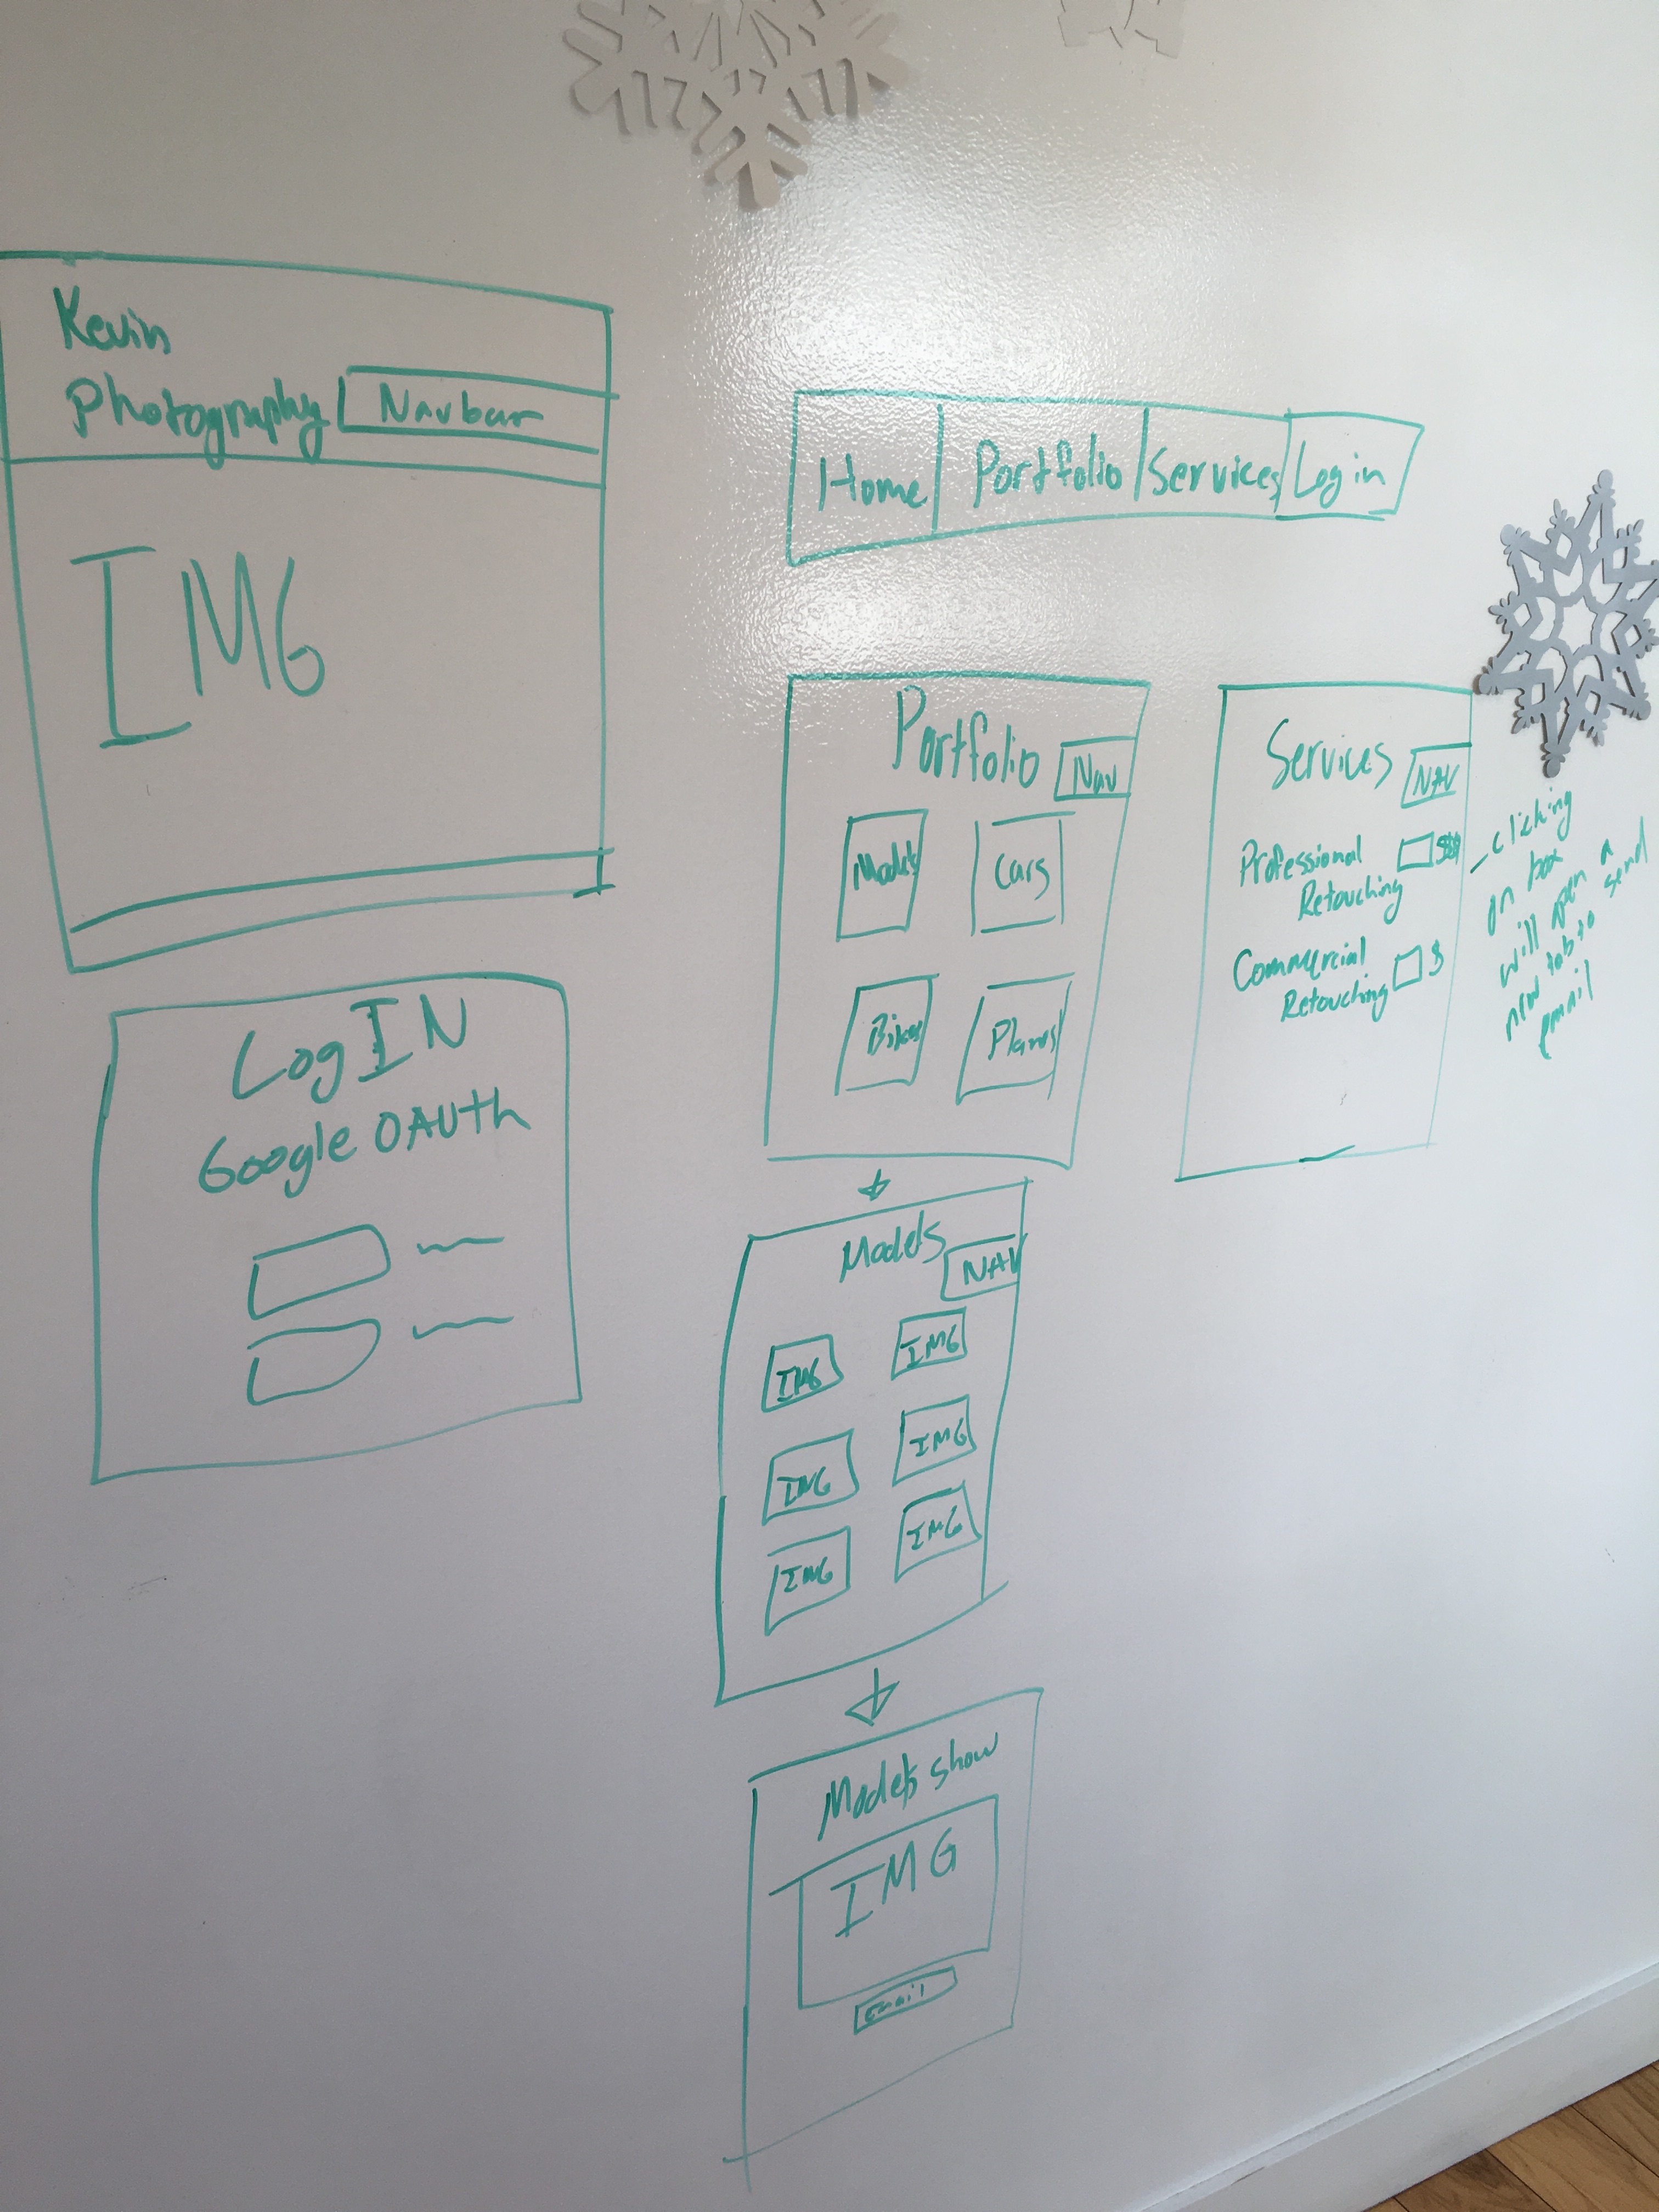 Kevin
Photography
Navbar
IMG
LogIN
Google OAUTH
Home
Portfolio
Services
Login
Portfolio
Nav
Models
Cars
Bikes
Planes
Models
NAV
IMG
IMG
IMG
IMG
IMG
IMG
Models show
IMG
Email
Services
NAV
Professional
Retouching
$$$
Commercial
Retouching
$
clicking
on box
will open a
new tab to send
email